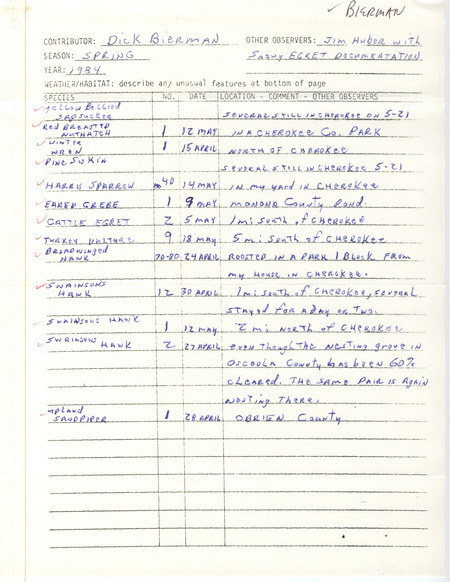 ✓ BIERMAN
CONTRIBUTOR: Dick Bierman OTHER OBSERVERS: Jim Huber with
SEASON: SPRING Snowy EGRET DOCUMENTATION
YEAR: 1984
WEATHER/HABITAT: describe any unusual features at bottom of page
SPECIES NO. DATE LOCATION - COMMENT - OTHER OBSERVERS
✓ Yellow Bellied
SAPSUCKER SEVERAL STILL IN CHEROKEE ON 5-21
✓ Red BREASTED
NUTHATCH 1 12 MAY IN A CHEROKEE Co. PARK
✓ WINTER
WREN 1 15 APRIL NORTH OF CHEROKEE
✓ PINE SISKIN
SEVERAL STILL IN CHEROKEE 5-21
✓ HARRIS SPARROW 40 14 MAY in my yard in CHEROKEE
✓ EARED GREBE 1 9 MAY MONONA County Pond.
✓ CATTLE EGRET 2 5 MAY 1 mi South of CHEROKEE
✓ TURKEY VULTURE 9 18 MAY 5 mi South of CHEROKEE
✓ BROADWINGED
HAWK 70-80 24 APRIL ROOSTED IN A PARK 1 Block FROM
my HOUSE IN CHEROKEE.
✓ SWAINSONS
HAWK 12 30 APRIL 1 mi south of CHEROKEE, SEVERAL
STAYED FOR A DAY OR TWO.
SWAINSONS HAWK
1 12 MAY 2 mi NORTH of CHEROKEE
✓ SWAINSONS
HAWK 2 27 APRIL even Though THE NESTING grove in
OSCEOLA County has been 60%
CLEARED. THE SAME PAIR is Again
NESTING There.
✓ upland
SANDPIPER 1 28 APRIL OBRIEN County